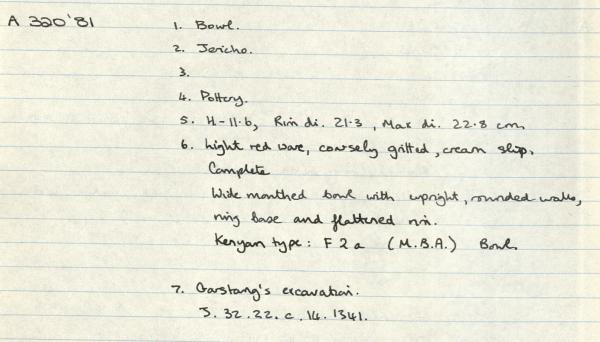 A 320'81
1. Bowl.
2. Jericho.
3.
4. Pottery.
5. H-11.6, Rim di. 21.3, Max di. 22.8 cm.
6. Light red ware, coarsely gritted, cream slip.
Complete
Wide mouthed bowl with upright, rounded walls,
ring base and flattened rim.
Kenyon type: F 2 a (M.B.A.) Bowl.
7. Garstang's excavation.
J. 32.22.c.14.1341.